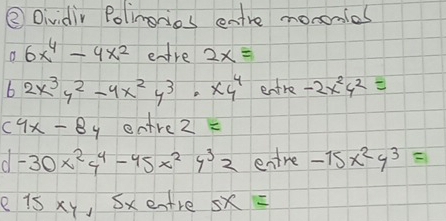 ② Dividir Polimonios entre monomios
a 6x⁴ - 4x² entre 2x =
b 2x³y² - 4x²y³ . xy⁴ entre -2x²y² =
c 4x - 8y entre 2 =
d -30x²y⁴ - 45x²y³z entre -15x²y³ =
e 15xy, 5x entre 5x =